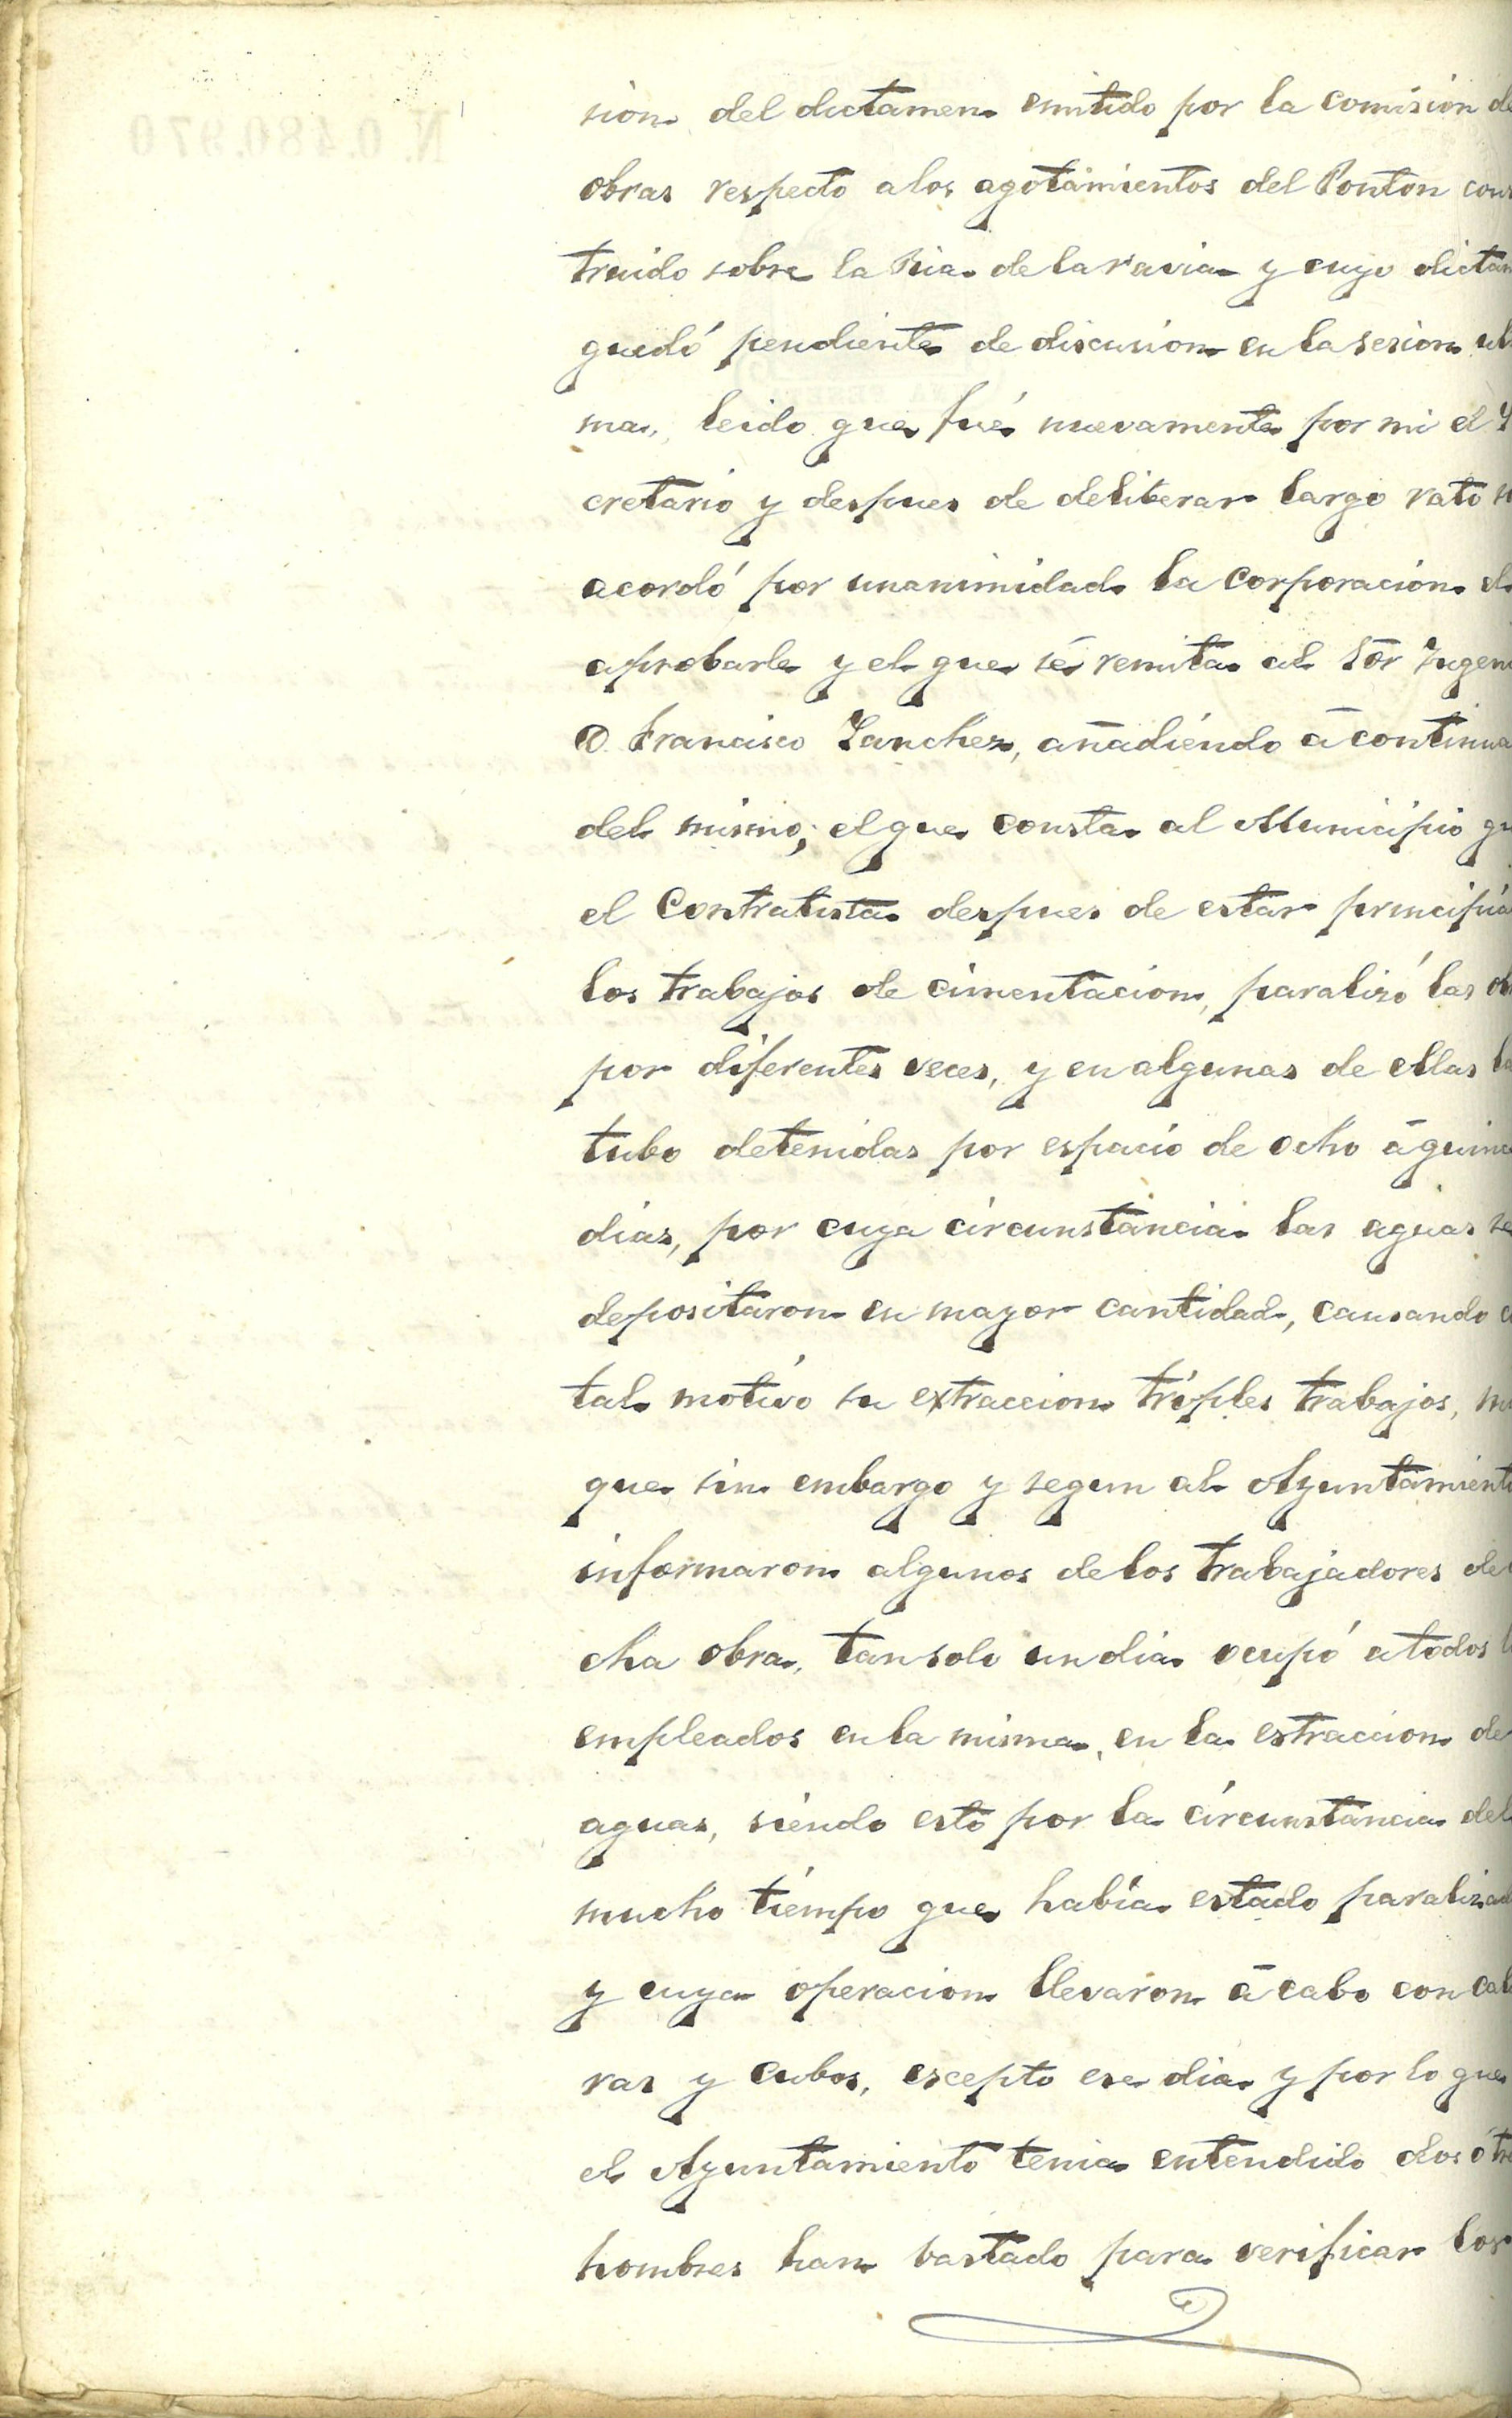 N. 0.480.970
sion del dictamen emitido por la comisión de
obras respecto a los agotamientos del Ponton cons
truido sobre la Ria de la ravia y cuyo dictam
quedó pendiente de discusion en la sesion ul
ma, leido que fué nuevamente por mi el
cretario y despues de deliberar largo rato
acordó por unanimidad la Corporacion el
aprobarle y el que sé remita al Sor Ingeni
D. Francisco Sanchez, añadiéndo á continua
del mismo; el que consta al Municipio qu
el Contratista despues de estar principia
los trabajos de cimentacion, paralizó las ob
por diferentes veces, y en algunas de ellas la
tubo detenidas por espacio de ocho á quince
dias, por cuya circunstáncia las aguas se
depositaron en mayor cantidad, causando
tal motívo su extraccion tríples trabajos,
que sin embargo y segun al Ayuntamiento
informaron algunos de los trabajadores de
cha obra, tan solo un dia ocupó a todos l
empleados en la misma, en la estraccion de
aguas, siéndo esto por la círcunstancia del
mucho tiémpo que había estado paralizad
y cuya operacion llevaron á cabo con cal
ras y cubos, escepto ese dia y por lo que
el Ayuntamiento tenia entendido dos ó tre
hombres han bastado para verificar los